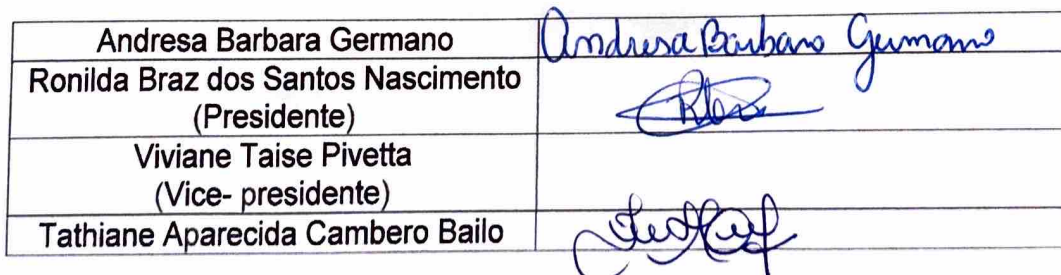 Andresa Barbara Germano
Andresa Barbara Germano
Ronilda Braz dos Santos Nascimento
(Presidente)
Viviane Taise Pivetta
(Vice- presidente)
Tathiane Aparecida Cambero Bailo